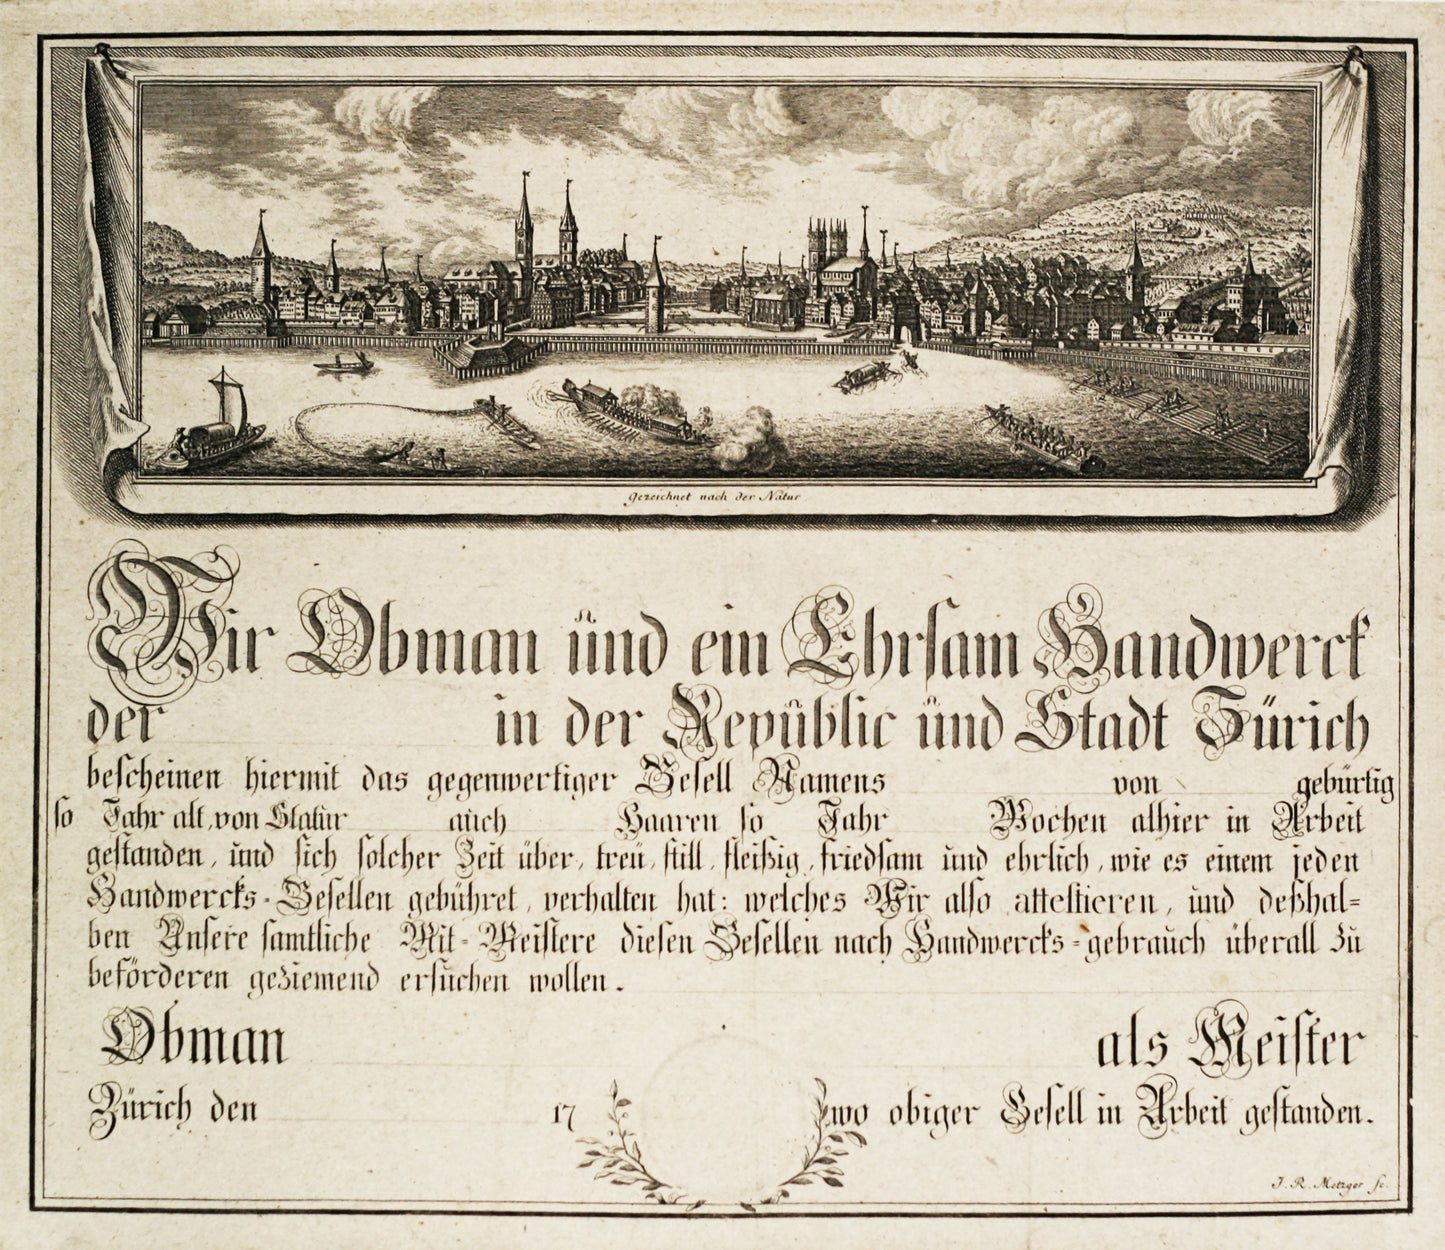 Gezeichnet nach der Natur
Wir Obman und ein Ehrsam Handwerck
der in der Republic und Stadt Zürich
bescheinen hiermit das gegenwertiger Gesell Namens von gebürtig
so Jahr alt, von Statur auch Haaren so Jahr Wochen alhier in Arbeit
gestanden, und sich solcher Zeit über, treu, still, fleißig, friedsam und ehrlich, wie es einem jeden
Handwercks-Gesellen gebühret, verhalten hat: welches Wir also attestieren, und deßhal=
ben Unsere samtliche Mit-Meistere diesen Gesellen nach Handwercks-gebrauch überall zu
beförderen geziemend ersuchen wollen.
Obman als Meister
Zürich den 17 wo obiger Gesell in Arbeit gestanden.
J. R. Metzger sc.